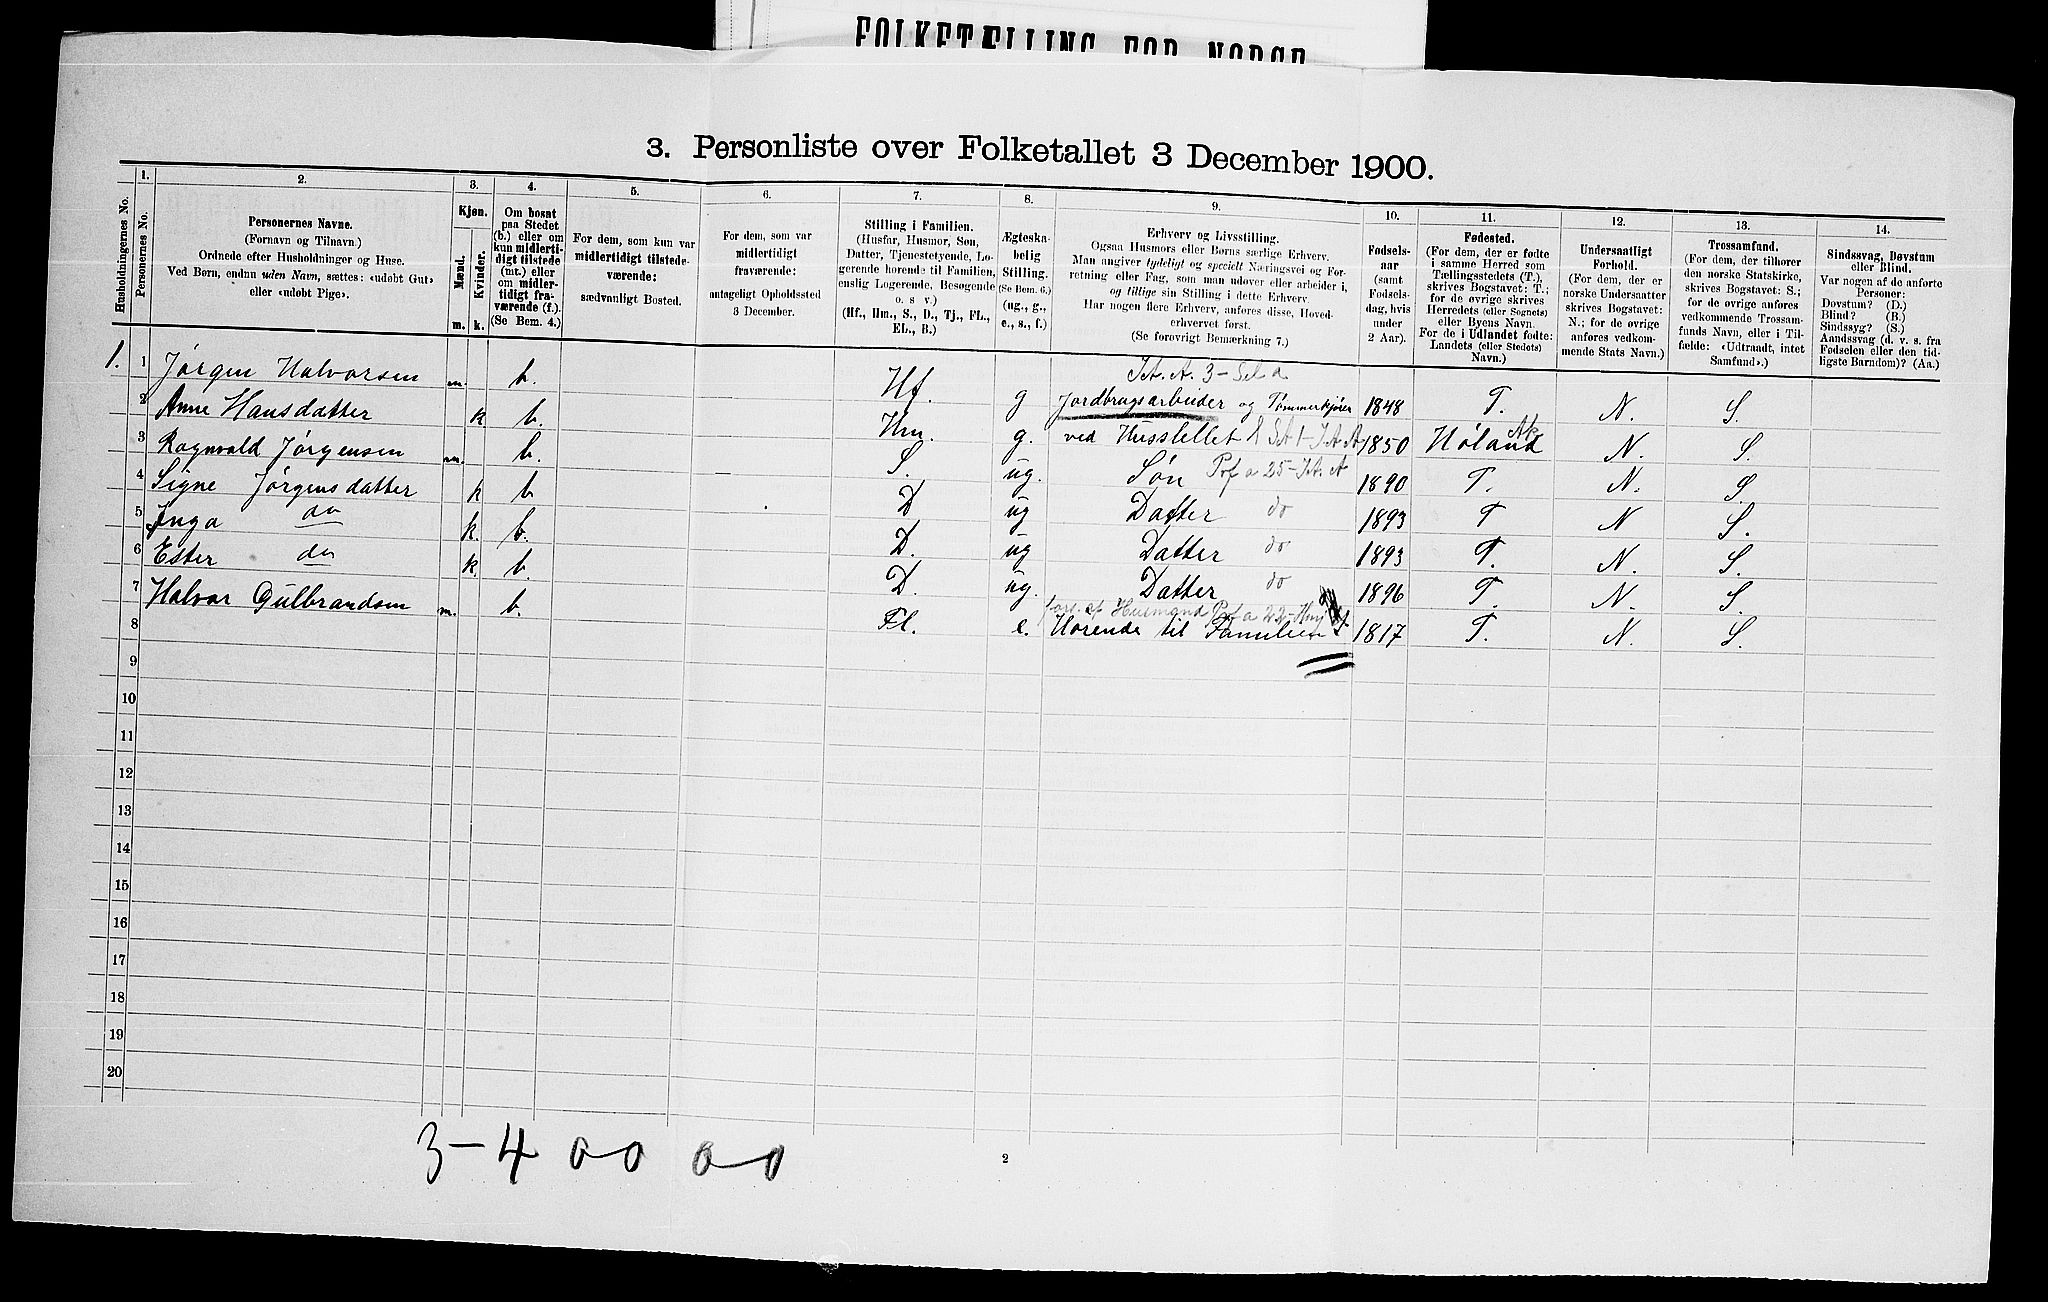 FOLKETÆLLING FOR NORGE
3. Personliste over Folketallet 3 December 1900.
Husholdningernes No.
1.
Personernes No.
2.
Personernes Navne.
(Fornavn og Tilnavn.)
Ordnede efter Husholdninger og Huse.
Ved Børn, endnu uden Navn, sættes: «udøbt Gut»
eller «udøbt Pige».
3.
Kjøn.
Mænd.
Kvinder.
m.
k.
4.
Om bosat
paa Stedet
(b.) eller om
kun midlerti-
digt tilstede
(mt.) eller
om midler-
tidigt fra-
værende (f.).
(Se Bem. 4.)
5.
For dem, som kun var
midlertidigt tilstede-
værende:
sædvanligt Bosted.
6.
For dem, som var
midlertidigt
fraværende:
antageligt Opholdssted
3 December.
7.
Stilling i Familien.
(Husfar, Husmor, Søn,
Datter, Tjenestetyende, Lo-
gerende hørende til Familien,
enslig Logerende, Besøgende
o. s v.)
(Hf., Hm., S., D., Tj., FL.,
EL., B.)
8.
Ægteska-
belig
Stilling.
(Se Bem. 6.)
(ug., g.,
e., s., f.)
9.
Erhverv og Livsstilling.
Ogsaa Husmors eller Børns særlige Erhverv.
Man angiver tydeligt og specielt Næringsvei og For-
retning eller Fag, som man udøver eller arbeider i,
og tillige sin Stilling i dette Erhverv.
Har nogen flere Erhverv, anføres disse, Hoved-
erhvervet først.
(Se forøvrigt Bemærkning 7.)
10.
Fødsels-
aar
(samt
Fødsels-
dag, hvis
under
2 Aar).
11.
Fødested.
(For dem, der er fødte
i samme Herred som
Tællingsstedets (T.)
skrives Bogstavet: T.;
for de øvrige skrives
Herredets (eller Sognets)
eller Byens Navn.
For de i Udlandet fødte:
Landets (eller Stedets)
Navn.)
12.
Undersaatligt
Forhold.
(For dem, der er
norske Undersaatter
skrives Bogstavet:
N.; for de øvrige
anføres vedkom-
mende Stats Navn.)
13.
Trossamfund.
(For dem, der tilhører
den norske Statskirke,
skrives Bogstavet: S.;
for de øvrige anføres
vedkommende Trossam-
funds Navn, eller i Til-
fælde: «Udtraadt, intet
Samfund».)
14.
Sindssvag, Døvstum
eller Blind.
Var nogen af de anførte
Personer:
Døvstum? (D.)
Blind? (B.)
Sindssyg? (S.)
Aandssvag (d. v. s. fra
Fødselen eller den tid-
ligste Barndom)? (Aa.)
1. 1 Jørgen Halvorsen m. b. Hf. g Jordbrugsarbeider og Tømmerkjører 1848 T. N. S.
2 Anne Hansdatter k b. Hm. g. ved Husstellet 1850 Høland Ak N. S.
3 Ragnvald Jørgensen m. b. S. ug. Søn 1890 T. N. S.
4 Signe Jørgensdatter k b D ug Datter do 1893 T N S.
5 Inga do k. b. D. ug Datter do 1893 T. N. S.
6 Ester do k. b. D. ug. Datter do 1896 T. N. S.
7 Halvor Gulbrandsen m. b. Fl. e. Hørende til Familien 1817 T. N. S.
8
9
10
11
12
13
14
15
16
17
18
19
20
3-4 00 00
2